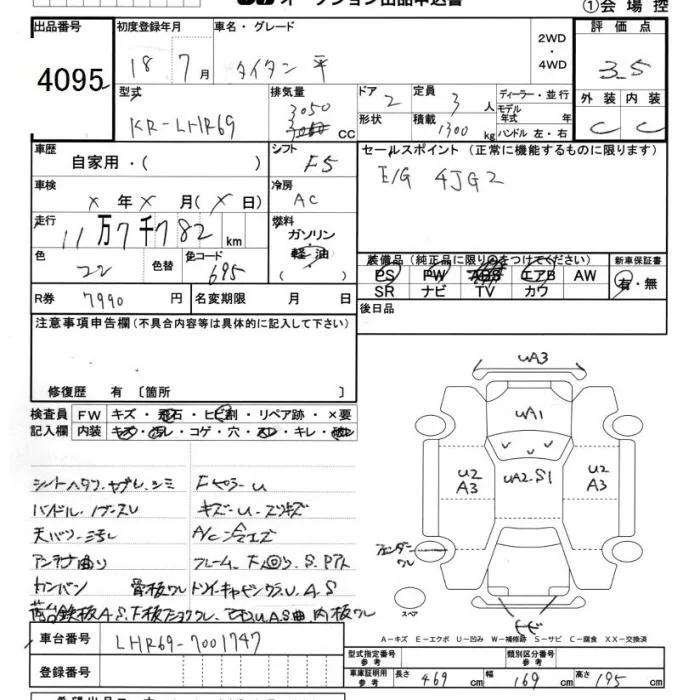 オークション出品申込書
①会場控
出品番号 初度登録年月 車名・グレード 2WD・4WD 評価点
4095 18 7月 タイタン 平 3.5
型式 排気量 ドア 定員 ディーラー・並行 外装 内装
KR-LHR69 3050 cc 2 3人 モデル年式 年 C C
形状 積載 1300kg ハンドル 左・右
車歴 シフト セールスポイント(正常に機能するものに限ります)
自家用・( ) F5 E/G 4JG2
車検 冷房
x年x月(x日) AC
走行 燃料
11万7千782km ガソリン
軽油
( )
色 22 色替 色コード 695
装備品(純正品に限り○をつけてください) 新車保証書
PS PW ABS エアB AW 有・無
SR ナビ TV カワ
R券 7990円 名変期限 月 日 後日品
注意事項申告欄(不具合内容等は具体的に記入して下さい)
修復歴 有 〔箇所 〕
検査員 FW キズ・飛石・ヒビ割・リペア跡・×要
記入欄 内装 キズ・汚レ・コゲ・穴・スレ・キレ・破レ
シートヘタリ.ヤブレ.シミ Fピラーu
ハンドル.ノブ-スレ キズ-u-スリキズ
A/C 冷エズ
アンテナ曲り
カンバン 骨板ワレ
uA3
uA1
uA2.S1
u2
A3
u2
A3
フェンダー
ワレ
スペア
A-キズ E-エクボ U-凹み W-補修跡 S-サビ C-腐食 XX-交換済
車台番号 LHR69-7001747
型式指定番号 参考 類別区分番号 参考
登録番号
車庫証明用 参考 長さ 469cm 幅 169cm 高さ 195cm